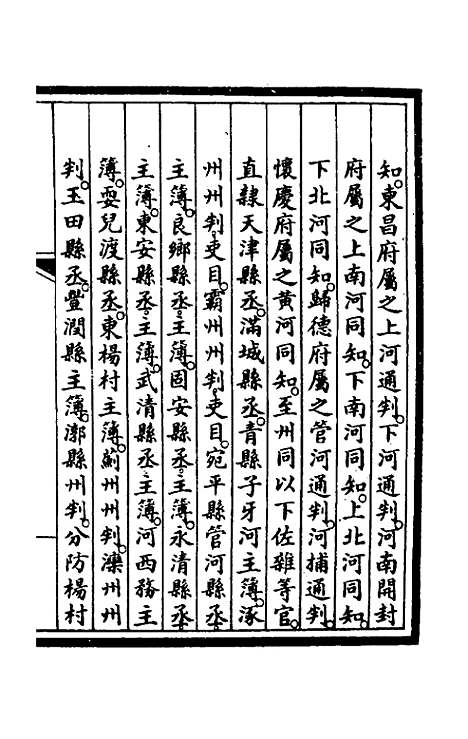 知。東昌府屬之上河通判。下河通判。河南開封
府屬之上南河同知。下南河同知。上北河同知。
下北河同知。歸德府屬之管河通判。河捕通判。
懷慶府屬之黃河同知。至州同以下佐雜等官。
直隸天津縣丞。滿城縣丞。青縣子牙河主簿。涿
州州判。吏目。霸州州判。吏目。宛平縣管河縣丞。
主簿。良鄉縣丞。主簿。固安縣丞。主簿。永清縣丞。
主簿。東安縣丞。主簿。武清縣丞。主簿。河西務主
簿。耍兒渡縣丞。東楊村主簿。薊州州判。灤州州
判。玉田縣丞。豐潤縣主簿。漷縣州判。分防楊村